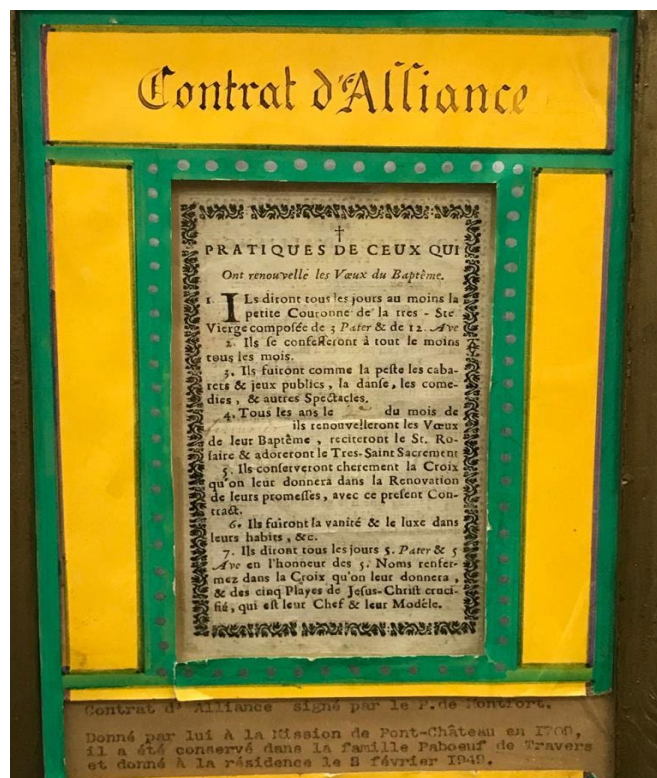 Contrat d'Alliance
PRATIQUES DE CEUX QUI
Ont renouvellé les Vœux du Baptême.
1. ILs diront tous les jours au moins la
petite Couronne de la tres - Ste
Vierge composée de 3 Pater & de 12. Ave
2. Ils se confesseront à tout le moins
tous les mois.
3. Ils fuiront comme la peste les caba-
rets & jeux publics, la danse, les come-
dies, & autres Spectacles.
4. Tous les ans le du mois de
ils renouvelleront les Vœux
de leur Baptême, reciteront le St. Ro-
saire & adoreront le Tres-Saint Sacrement
5. Ils conserveront cherement la Croix
qu'on leur donnera dans la Renovation
de leurs promesses, avec ce present Con-
tract.
6. Ils fuiront la vanité & le luxe dans
leurs habits, &c.
7. Ils diront tous les jours 5. Pater & 5
Ave en l'honneur des 5. Noms renfer-
mez dans la Croix qu'on leur donnera,
& des cinq Playes de Jesus-Christ cruci-
fié, qui est leur Chef & leur Modéle.
Contrat d'Alliance signé par le P.de Montfort.
Donné par lui à la Mission de Pont-Château en 1709,
il a été conservé dans la famille Paboeuf de Travers
et donné à la résidence le 8 février 1949.